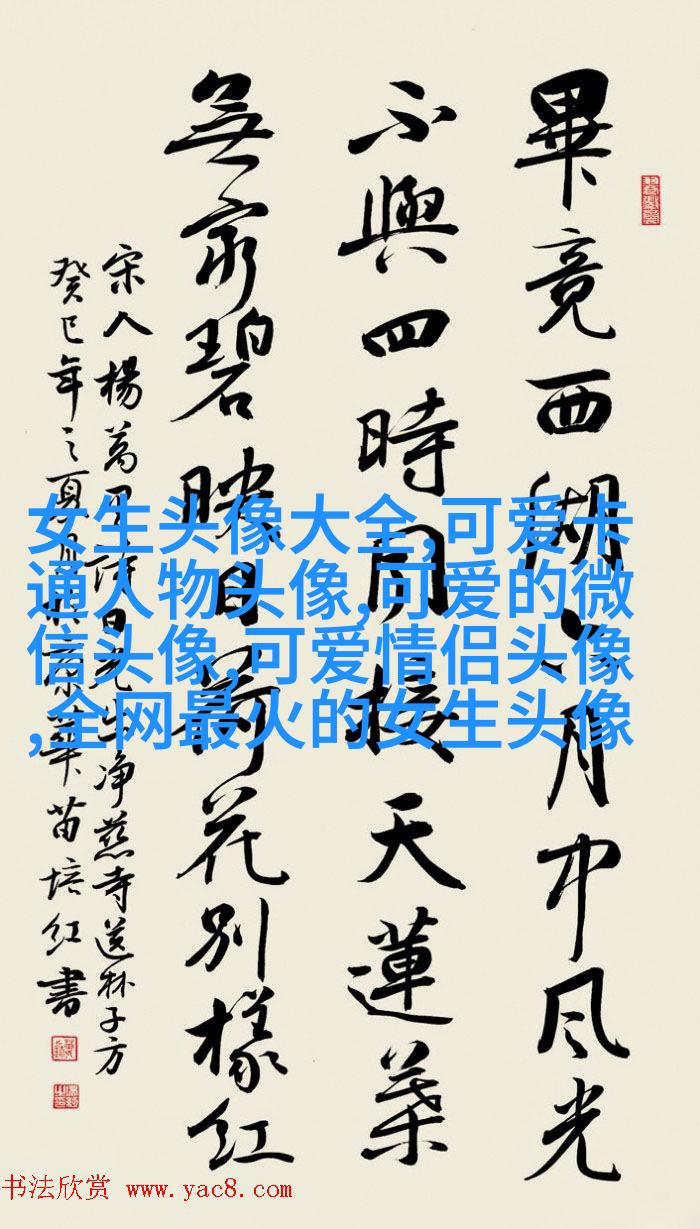 畢竟西湖六月中風光
不與四時同接天蓮葉
無窮碧映日荷花別樣紅
宋人楊萬里詩曉出净慈寺送林子方
癸巳年之夏月於京華苗培紅書
女生头像大全,可爱卡
通人物头像,可爱的微
信头像,可爱情侣头像
,全网最火的女生头像
书法欣赏 www.yac8.com